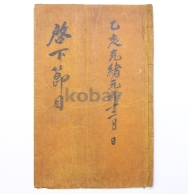 乙亥光緖元年十二月 日
啓下節目
kobay